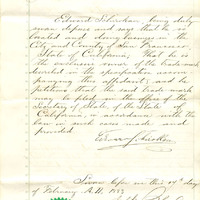 Edward Schinkan, being duly
sworn deposes and says that he is
located and doing business in the
City and County of San Francisco
State of California. That he is
the exclusive owner of the trade mark
described in the specification accom-
panying this affidavit, and he
petitions that the said trade mark
may be filed in the office of the
Secretary of State, of the State of
California, in accordance with the
law in such cases made and
provided
Sworn before me this 19th day
of February A.D. 188